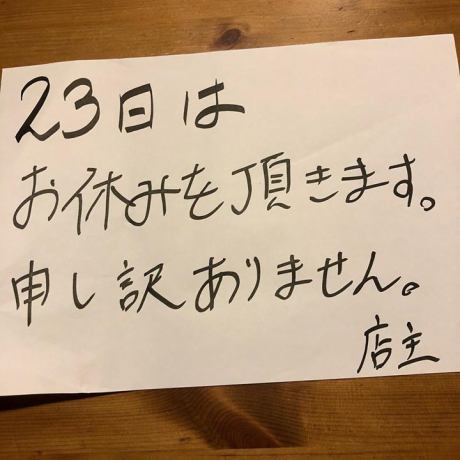 23日は
お休みを頂きます。
申し訳ありません。
店主